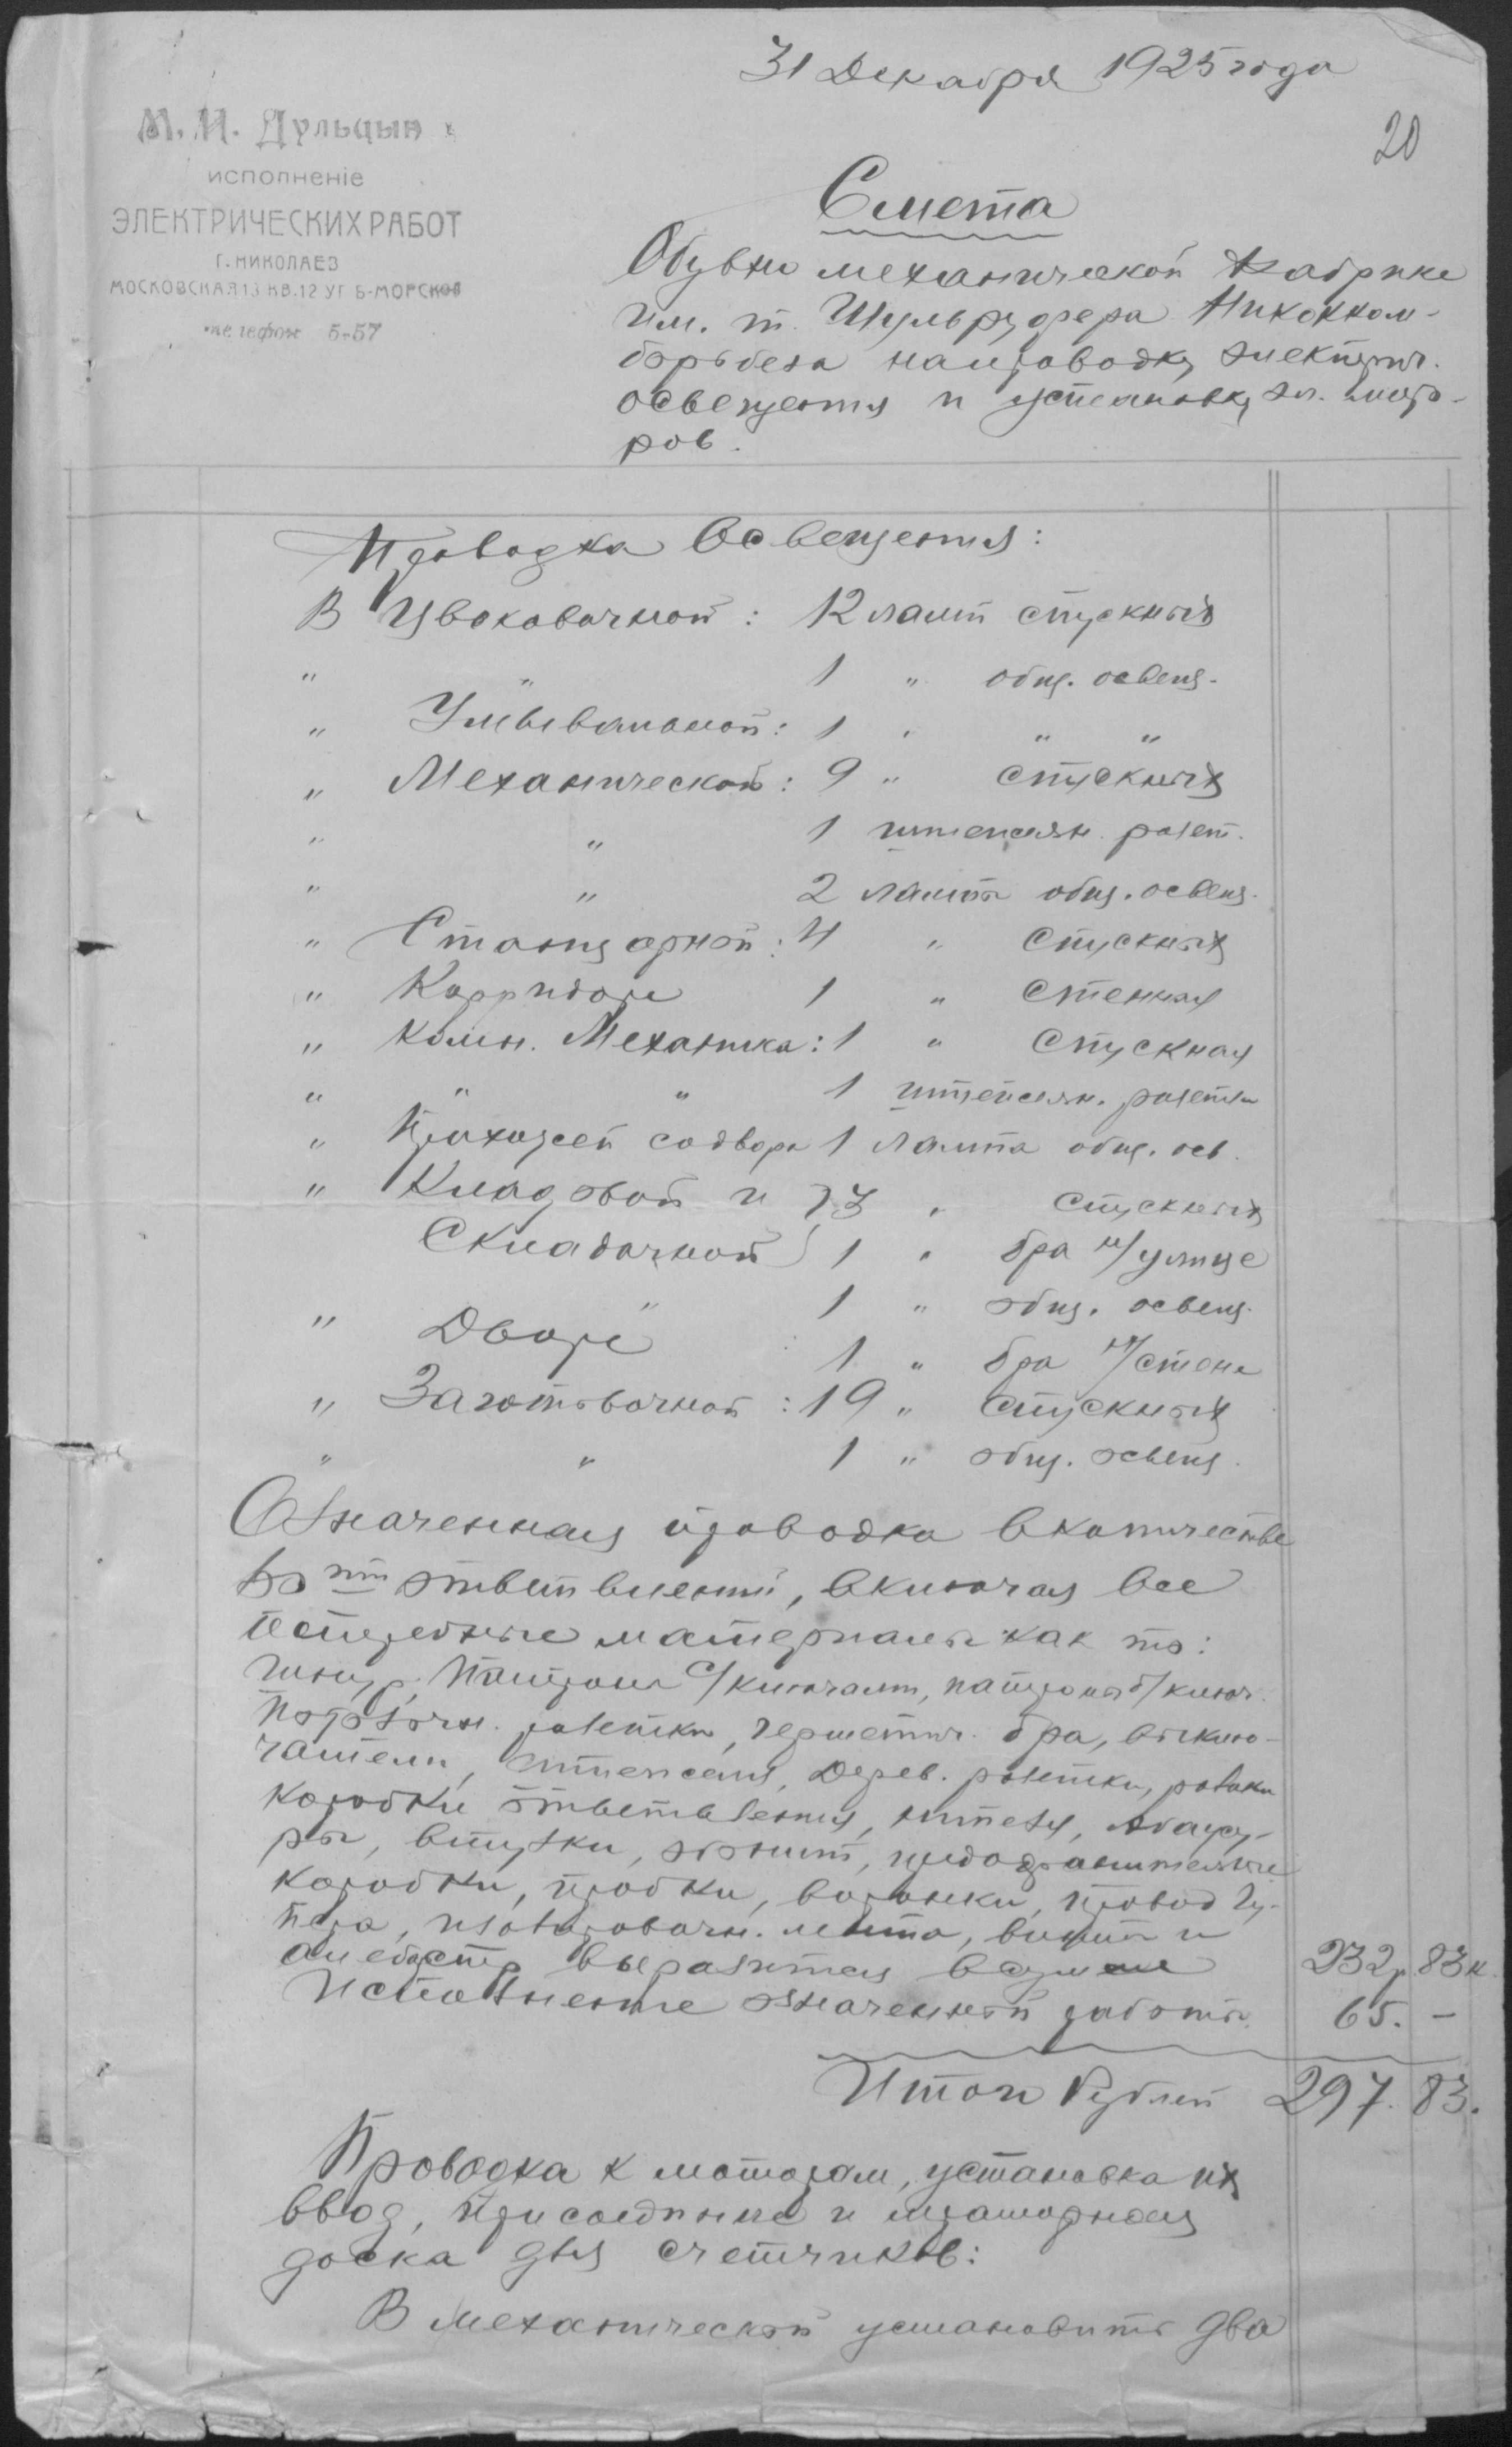 31 Декабря 1925 года
20
М. И. Дульцын
исполненіе
ЭЛЕКТРИЧЕСКИХ РАБОТ
Г. НИКОЛАЕВ
МОСКОВСКАЯ 13 КВ. 12 УГ Б-МОРСКОЙ
телефон 5-57
Смета
Обувно механической Фабрике
Им. т. Шульрудфера
на проводку электрич.
освещения и установку эл. мото-
ров.
Проводка Освещения:
В Цвоковочной: 12 ламп спускных
" " 1 " общ. освещ.
" Умывальной: 1 " " "
" Механической: 9 " спускных
" " 1 штепсельн. розет.
" " 2 лампы общ. освещ.
" Станцарной: 4 " спускных
" Корридоре 1 " стенная
" Комн. Механика: 1 " спускная
" " " 1 штепсельн. розетка
" Прихожей со двора 1 лампа общ. осв.
" Кладовой и } 3 " спускных
Складочной } 1 " бра н/улице
" 1 " общ. освещ.
" Дворе : 1 " бра н/стене
" Заготовочной: 19 " спускных
" " 1 " общ. освещ.
Означенная проводка в количестве
60 ти ответвлений, включая все
потребные материалы как то:
Шнур, патроны с/ключами, патроны б/ключ.
потолочн. розетки, герметич. бра, выклю-
чатели, штепселя, Дерев. розетки, ролики
коробки ответвления, штепс., Абажу-
ры, втулки, эбонит, предохранительные
коробки, пробки, воронки, провод Гу-
пера, изолировочн. лента, винты и
алебастр выразится в сумме 232 р. 83 к.
Исполнение означенной работы 65. —
Итого Рублей 297. 83.
Проводка к моторам, установка их
ввод, присоединение и мраморная
доска для счетчиков:
В механической установить два